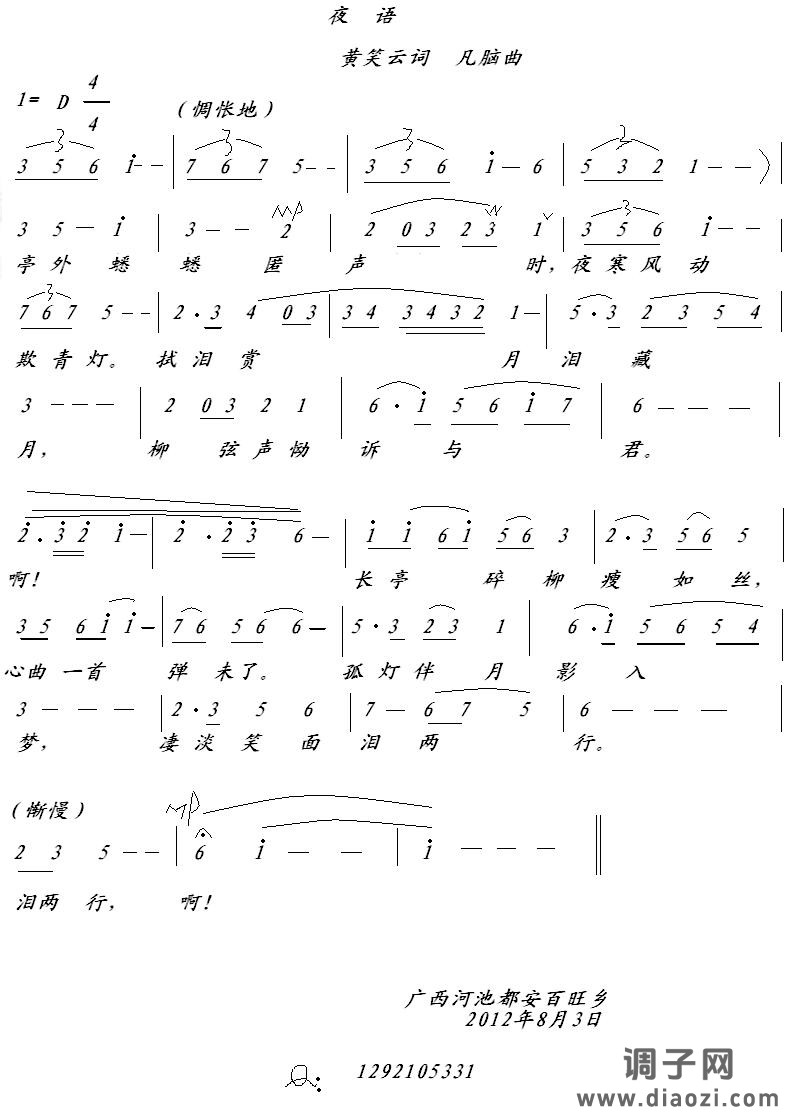 夜 语
黄笑云词 凡脑曲
1= D 4/4 (惆怅地)
3 5 6 1̇ — — | 7 6 7 5 — — | 3 5 6 1̇ — 6 | 5 3 2 1 — — )
3 5 — 1̇ | 3 — — 2 | 2 0 3 2 3 1 | 3 5 6 1̇ — —
mp
亭 外 蟋 蟋 匿 声 时，夜 寒 风 动
7 6 7 5 — — | 2 · 3 4 0 3 | 3 4 3 4 3 2 1 — | 5 · 3 2 3 5 4
欺 青 灯。 拭 泪 赏 月 泪 藏
3 — — — | 2 0 3 2 1 | 6 · 1̇ 5 6 1̇ 7 | 6 — — —
月， 柳 弦 声 恸 诉 与 君。
2̇ · 3̇ 2̇ 1̇ — | 2̇ · 2̇ 3̇ 6 — | 1̇ 1̇ 6 1̇ 5 6 3 | 2 · 3 5 6 5
啊！ 长 亭 碎 柳 瘦 如 丝，
3 5 6 1̇ 1̇ — | 7 6 5 6 6 — | 5 · 3 2 3 1 | 6 · 1̇ 5 6 5 4
心曲 一首 弹 未了。 孤 灯 伴 月 影 入
3 — — — | 2 · 3 5 6 | 7 — 6 7 5 | 6 — — —
梦， 凄 淡 笑 面 泪 两 行。
(慚慢) mp
2 3 5 — — | 6 1̇ — — | 1̇ — — —
泪两 行， 啊！
广西河池都安百旺乡
2012年8月3日
Q: 1292105331
调子网
www.diaozi.com